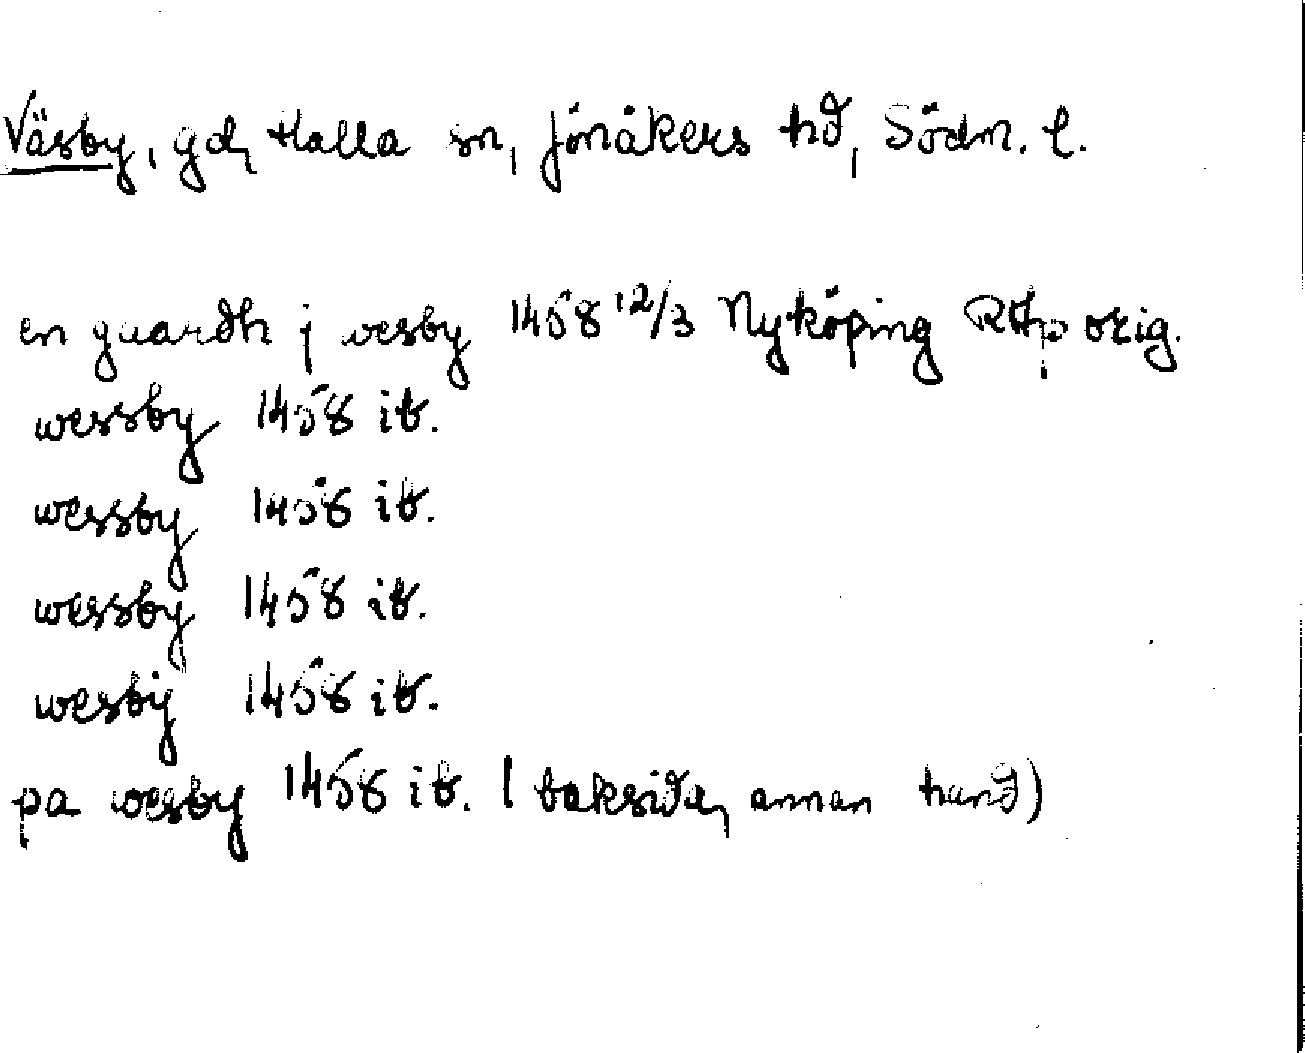 Väsby, gd, Halla sn, Jönåkers hd, Södm. l.
en guardh j vesby 1458 12/3 Nyköping RAp orig.
wessby 1458 ib.
wessby 1458 ib.
wessby 1458 ib.
wesbÿ 1458 ib.
pa wesby 1458 ib. (baksida, annan hand)